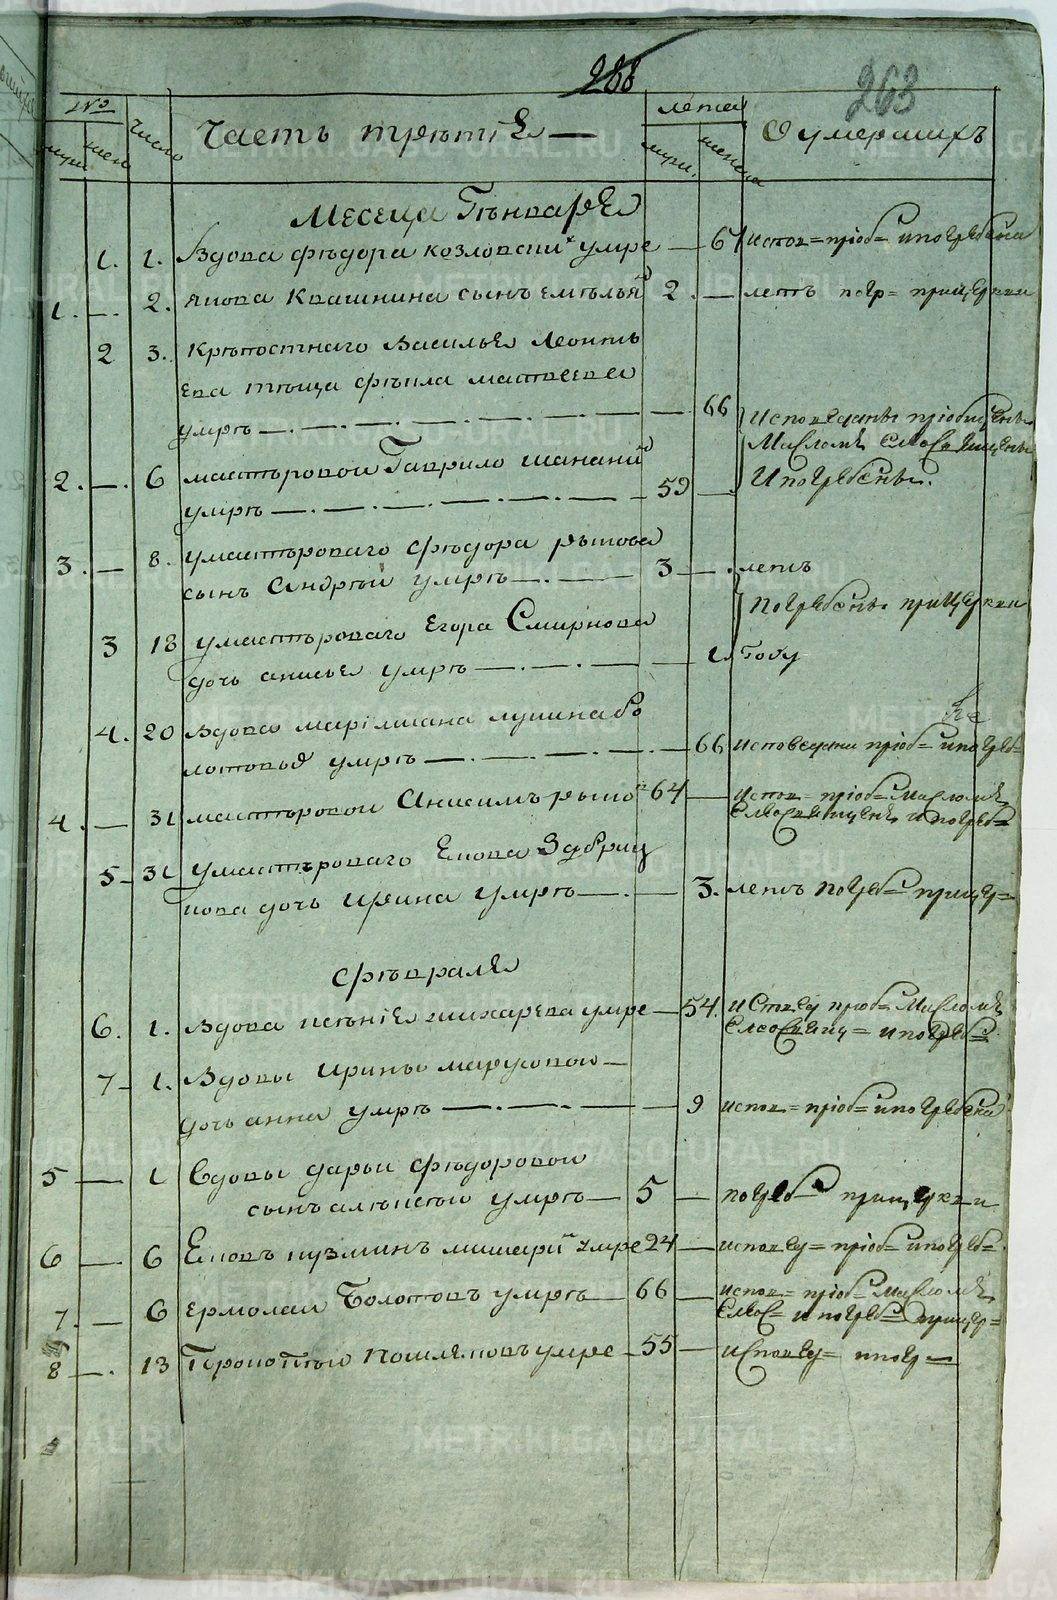 288
263
№ число Часть третие — лета О умерших
муж. жен. муж. женска
Месеца Генваря
1. 1. Вдова федора козловски умре — 61 испов = пріоб = и погребена
1. — 2. якова Квашнина сынъ емельян 2 . — летъ погр = прицеркви
2 3. Крепостнаго Василья Леонть
ева теща фекла матвеева
умре — . — . — . — 66 Исповеданы пріобщены
Маслом елеосвящены
2. — . 6 мастеровой Гаврило
И погребены.
умре — . — . — . — 59 —
3. — 8. умастероваго федора рылова
сынъ Андрей умре — . — 3 — . летъ
Погребены прицеркви
3 18 умастероваго Егора Смирнова
дочь анисья умре — . — . — 1 году
4. 20 Вдова лупина бо
лотова умре — . — . — 66 исповедана пріоб = и погреб =
на
4. — 31 мастеровой Анисимъ рыло 64 — испов = пріоб = Маслом
елеосвященъ и погреб =
5 — 31 умастероваго Екова
нова дочь ирина умре — . — 3. летъ погреб = прицер =
февраля
6. 1. Вдова ксение шихарева умре — 54. испвед пріоб = Маслом
елеосвящ = и погреб =
7 — 1. Вдовы ирины марусовой —
дочь анна умре — . — . — 9 испов = пріоб = и погребена
5 — 1 Вдовы дарьи федоровой
сынъ алексей умре — 5 — погреб прицеркви
6 — 6 Ековъ кузминъ умре 24 — исповед = пріоб = и погреб =
7. — 6 Ермолай Болотовъ умре — 66 — испов = пріоб = Маслом
елеос = и погреб = прицер =
8 — . 13 умре — 55 — исповед = и погр =